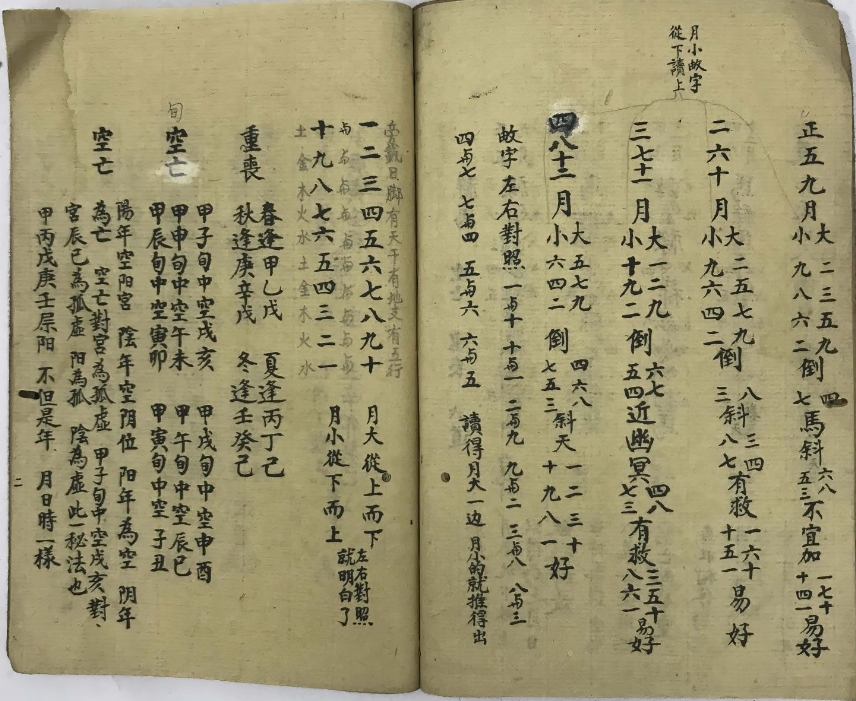 月小故字
從下讀上
正五九月大 二三五九 倒 四 馬斜 六八 不宜加 一七十 易好
小 九八六二 七 五三 十四一
二六十月大 二五七九 倒 八 斜 三四 有救 一六十 易好
小 九六四二 三 八七 十五一
三七十一月大 一二九 倒 六七 近幽冥 四八 有救 三五十 易好
小 十九二 五四 七三 八六一
四八十二月大 五七九 倒 四六八 斜天 一二三十 好
小 六四二 七五三 十九八一
故字左右對照 一与十 十与一 二与九 九与二 三与八 八与三
四与七 七与四 五与六 六与五 讀得月大一边 月小的就推得出
日脚有天干有地支有五行
一二三四五六七八九十 月大從上而下
与与与与与与与与与与 左右對照
十九八七六五四三二一 月小從下而上 就明白了
土金木火水土金木火水
重喪 春逢甲乙戊 夏逢丙丁己
秋逢庚辛戊 冬逢壬癸己
旬
空亡 甲子旬中空戌亥 甲戌旬中空申酉
甲申旬中空午未 甲午旬中空辰巳
甲辰旬中空寅卯 甲寅旬中空子丑
空亡 陽年空阳宮 陰年空阴位 阳年為空 阴年
為亡 空亡對宮為孤虛 甲子旬中空戌亥對、
宮辰巳為孤虛 阳為孤 陰為虛 此一秘法也
甲丙戊庚壬屬阳 不但是年、月日時一樣
二